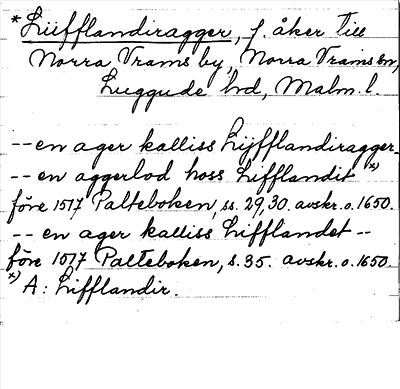 * Lüfflandiragger, f. åker till
Norra Vrams by, Norra Vrams sn,
Luggude hd, Malm. l.
-- en ager kalliss Lijfflandiragger -
-- en aggerlod hoss Lifflandit *)
före 1517 Palteboken, ss. 29, 30. avskr. o. 1650.
-- en ager kalliss Lifflandet --
före 1517 Palteboken, s. 35. avskr. o. 1650.
*) A: Lifflandir.